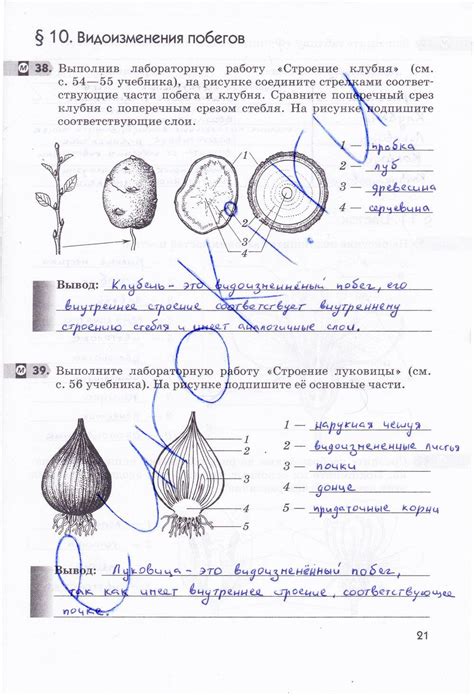 § 10. Видоизменения побегов
М 38. Выполнив лабораторную работу «Строение клубня» (см.
с. 54—55 учебника), на рисунке соедините стрелками соответ-
ствующие части побега и клубня. Сравните поперечный срез
клубня с поперечным срезом стебля. На рисунке подпишите
соответствующие слои.
1
2
3
4
1 — пробка
2 — луб
3 — древесина
4 — серцевина
Вывод: Клубень - это видоизменённый побег, его
внутреннее строение соответствует внутреннему
строению стебля и имеет аналогичные слои.
М 39. Выполните лабораторную работу «Строение луковицы» (см.
с. 56 учебника). На рисунке подпишите её основные части.
1
2
3
4
5
1 — наружная чешуя
2 — видоизмененные листья
3 — почки
4 — донце
5 — придаточные корни
Вывод: Луковица - это видоизменённый побег,
так как имеет внутреннее строение, соответствующее
почке.
21